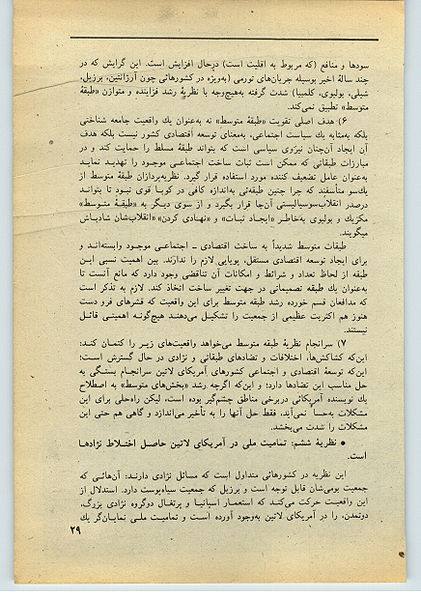 سودها و منافع (که مربوط به اقلیت است) درحال افزایش است. این گرایش که در
چند سالهٔ اخیر بوسیله جریان‌های تورمی (به‌ویژه در کشورهائی چون آرژانتین، برزیل،
شیلی، بولیوی، کلمبیا) شدت گرفته به‌هیچ‌وجه با نظریهٔ رشد فزاینده و متوازن «طبقهٔ
متوسط» تطبیق نمی‌کند.
۶) هدف اصلی تقویت «طبقهٔ متوسط» نه به‌عنوان یك واقعیت جامعه شناختی
بلکه به‌مثابه یك سیاست اجتماعی، به‌معنای توسعه اقتصادی کشور نیست بلکه هدف
آن ایجاد آن‌چنان نیروی سیاسی است که بتواند طبقهٔ مسلط را حمایت کند و در
مبارزات طبقاتی که ممکن است ثبات ساخت اجتماعی موجود را تهدید نماید
به‌عنوان عامل تضعیف کننده مورد استفاده قرار گیرد. نظریه‌پردازان طبقهٔ متوسط از
یك‌سو متأسفند که چرا چنین طبقه‌ئی به‌اندازه کافی در کوبا قوی نبود تا بتواند
درصدر انقلاب‌سوسیالیستی آن‌جا قرار بگیرد و از سوی دیگر به «طبقهٔ متوسط»
مکزیك و بولیوی به‌خاطر «ایجاد ثبات» و «نهادی کردن» «انقلاب‌شان شادباش
میگویند.
طبقات متوسط شدیداً به ساخت اقتصادی ـ اجتماعی موجود وابسته‌اند و
برای ایجاد توسعه اقتصادی مستقل، پویایی لازم را ندارند. بین اهمیت نسبی این
طبقه از لحاظ تعداد و شرائط و امکانات آن تناقضی وجود دارد که مانع آنست تا
به‌عنوان یك طبقه تصمیماتی در جهت تغییر ساخت اتخاذ کند. لازم به تذکر است
که مدافعان قسم خورده رشد طبقه متوسط برای این واقعیت که قشرهای فرو دست
هنوز هم اکثریت عظیمی از جمعیت را تشکیل می‌دهند هیچ‌گونه اهمیتی قائل
نیستند.
۷) سرانجام نظریهٔ طبقه متوسط می‌خواهد واقعیت‌های زیر را کتمان کند:
این‌که کشاکش‌ها، اختلافات و تضادهای طبقاتی و نژادی در حال گسترش است؛
این‌که توسعهٔ اقتصادی و اجتماعی کشورهای آمریکای لاتین سرانجام بستگی به
حل مناسب این تضادها دارد؛ و این‌که اگرچه رشد «بخش‌های متوسط» به اصطلاح
یك نویسنده آمریکائی دربرخی مناطق چشم‌گیر بوده است، لیکن راه‌حلی برای این
مشکلات نمی‌آید، فقط حل آنها را به تأخیر می‌اندازد و گاهی هم حتی این
مشکلات را شدت می‌بخشد.
● نظریهٔ ششم: تمامیت ملی در آمریکای لاتین حاصل اختلاط نژادها
است.
این نظریه در کشورهائی متداول است که مسائل نژادی دارند: آن‌هائی که
جمعیت بومی‌شان قابل توجه است و برزیل که جمعیت سیاه‌پوست دارد. استدلال از
این واقعیت حرکت می‌کند که استعمار اسپانیا و پرتغال دوگروه نژادی بزرگ،
دوتمدن، را در آمریکای لاتین به‌وجود آورده است و تمامیت ملی نمایان‌گر یك
۲۹